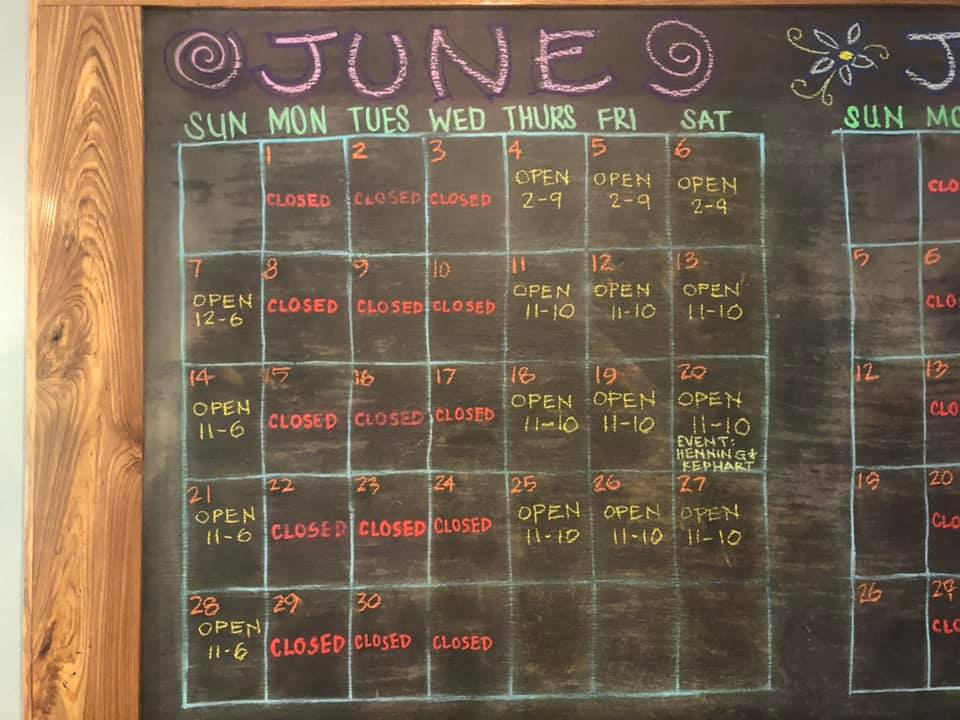 JUNE J
SUN MON TUES WED THURS FRI SAT SUN MO
1 2 3 4 5 6
CLOSED CLOSED CLOSED OPEN OPEN OPEN CLO
2-9 2-9 2-9
7 8 9 10 11 12 13 5 6
OPEN CLOSED CLOSED CLOSED OPEN OPEN OPEN CLO
12-6 11-10 11-10 11-10
14 15 16 17 18 19 20 12 13
OPEN CLOSED CLOSED CLOSED OPEN OPEN OPEN CLO
11-6 11-10 11-10 11-10
EVENT:
HENNING &
KEPHART
21 22 23 24 25 26 27 19 20
OPEN CLOSED CLOSED CLOSED OPEN OPEN OPEN CLO
11-6 11-10 11-10 11-10
28 29 30 26 27
OPEN CLOSED CLOSED CLOSED CLO
11-6